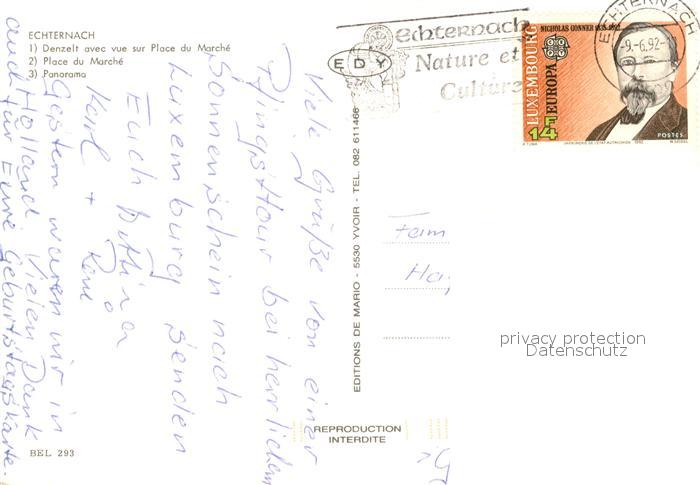 ECHTERNACH
1) Denzelt avec vue sur Place du Marché
2) Place du Marché
3) Panorama
EDY
echternach
Nature et
Culture
ECHTERNACH
-9.-6.92-
NICHOLAS GONNER 1835-1892
LUXEMBOURG
EUROPA
14F
POSTES
Viele Grüße von einer
Pfingsttour bei herrlichem
Sonnenschein nach
Luxemburg senden
Euch
Karl +
Gestern waren wir in
Holland Vielen Dank
auch für Eure Geburtstagskarte.
EDITIONS DE MARIO - 5530 YVOIR - TEL. 082 611466
Fam
Ha
privacy protection
Datenschutz
REPRODUCTION
INTERDITE
BEL 293